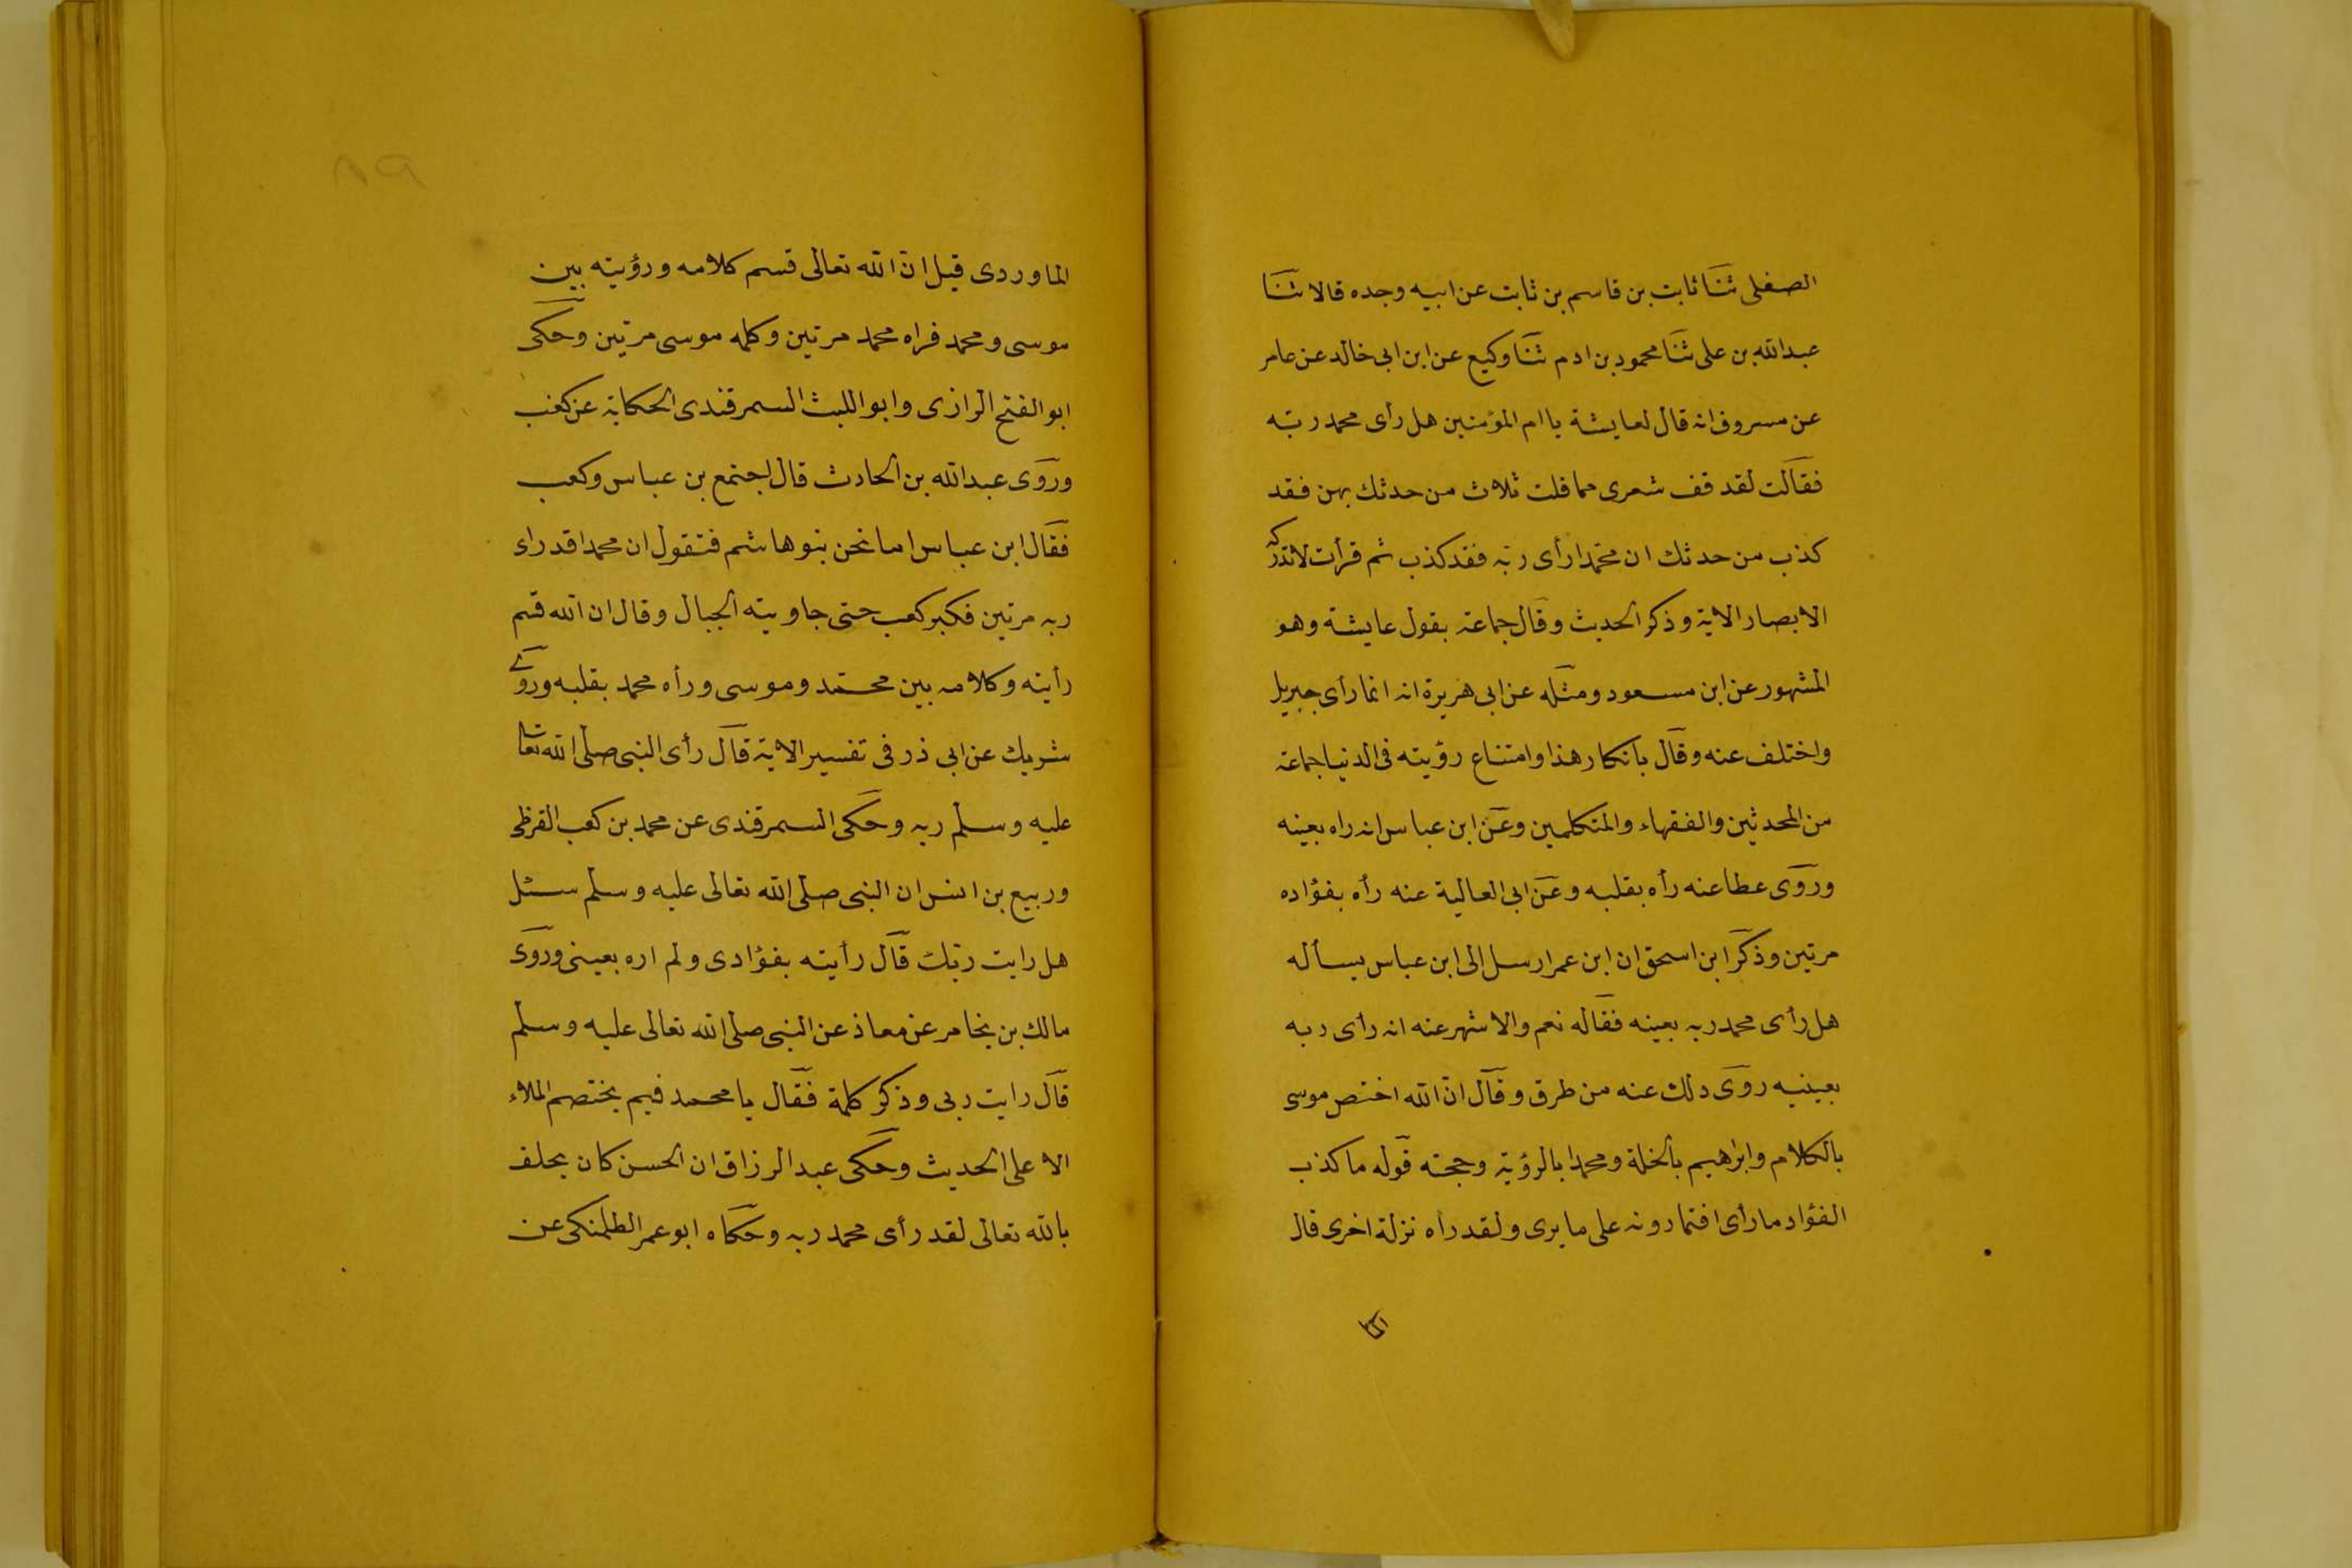 الصفلى ثنا ثابت بن قاسم بن ثابت عن ابيه وجده قالا ثنا
عبدالله بن على ثنا محمود بن ادم ثنا وكيع عن ابن ابى خالد عن عامر
عن مسروق انه قال لعايشة يا ام المؤمنين هل رأى محمد ربّه
فقالت لقد قف شعرى مما قلت ثلاث من حدثك بهن فقد
كذب من حدثك ان محمدا رأى ربه فقد كذب ثم قرأت لا تدركه
الابصار الاية وذكر الحديث وقال جماعة بقول عايشة وهو
المشهور عن ابن مسعود ومثله عن ابى هريرة انه انما رأى جبريل
واختلف عنه وقال بانكار هذا وامتناع رؤيته فى الدنيا جماعة
من المحدثين والفقهاء والمتكلمين وعن ابن عباس انه راه بعينه
وروى عطا عنه رأه بقلبه وعن ابى العالية عنه رأه بفؤاده
مرتين وذكر ابن اسحق ان ابن عمر ارسل الى ابن عباس يسأله
هل رأى محمد ربه بعينه فقاله نعم والاشهر عنه انه رأى ربه
بعينيه روى ذلك عنه من طرق وقال انّ الله اختص موسى
بالكلام وابراهيم بالخلة ومحمدا بالرؤية وحجته قوله ما كذب
الفؤاد ما رأى افتمارونه على ما يرى ولقد راه نزلة اخرى قال
الما
٨٩
الماوردى قيل انّ الله تعالى قسم كلامه ورؤيته بين
موسى ومحمد فراه محمد مرتين وكلمه موسى مرتين وحكى
ابو الفتح الرازى وابو الليث السمرقندى الحكاية عن كعب
وروى عبدالله بن الحارث قال اجتمع بن عباس وكعب
فقال ابن عباس اما نحن بنو هاشم فنقول ان محمدا قد راء
ربه مرتين فكبر كعب حتى جاوبته الجبال وقال ان الله قسم
رأيته وكلامه بين محمد وموسى ورأه محمد بقلبه وروى
شريك عن ابى ذر فى تفسير الاية قال رأى النبى صلى الله تعا
عليه وسلم ربه وحكى السمرقندى عن محمد بن كعب القرظى
وربيع بن انس ان النبى صلى الله تعالى عليه وسلم سئل
هل رايت ربك قال رأيته بفؤادى ولم اره بعينى وروى
مالك بن يخامر عن معاذ عن النبى صلى الله تعالى عليه وسلم
قال رايت ربى وذكر كلمة فقال يا محمد فيم يختصم الملاء
الاعلى الحديث وحكى عبد الرزاق ان الحسن كان يحلف
بالله تعالى لقد رأى محمد ربه وحكاه ابو عمر الطلمنكى عن